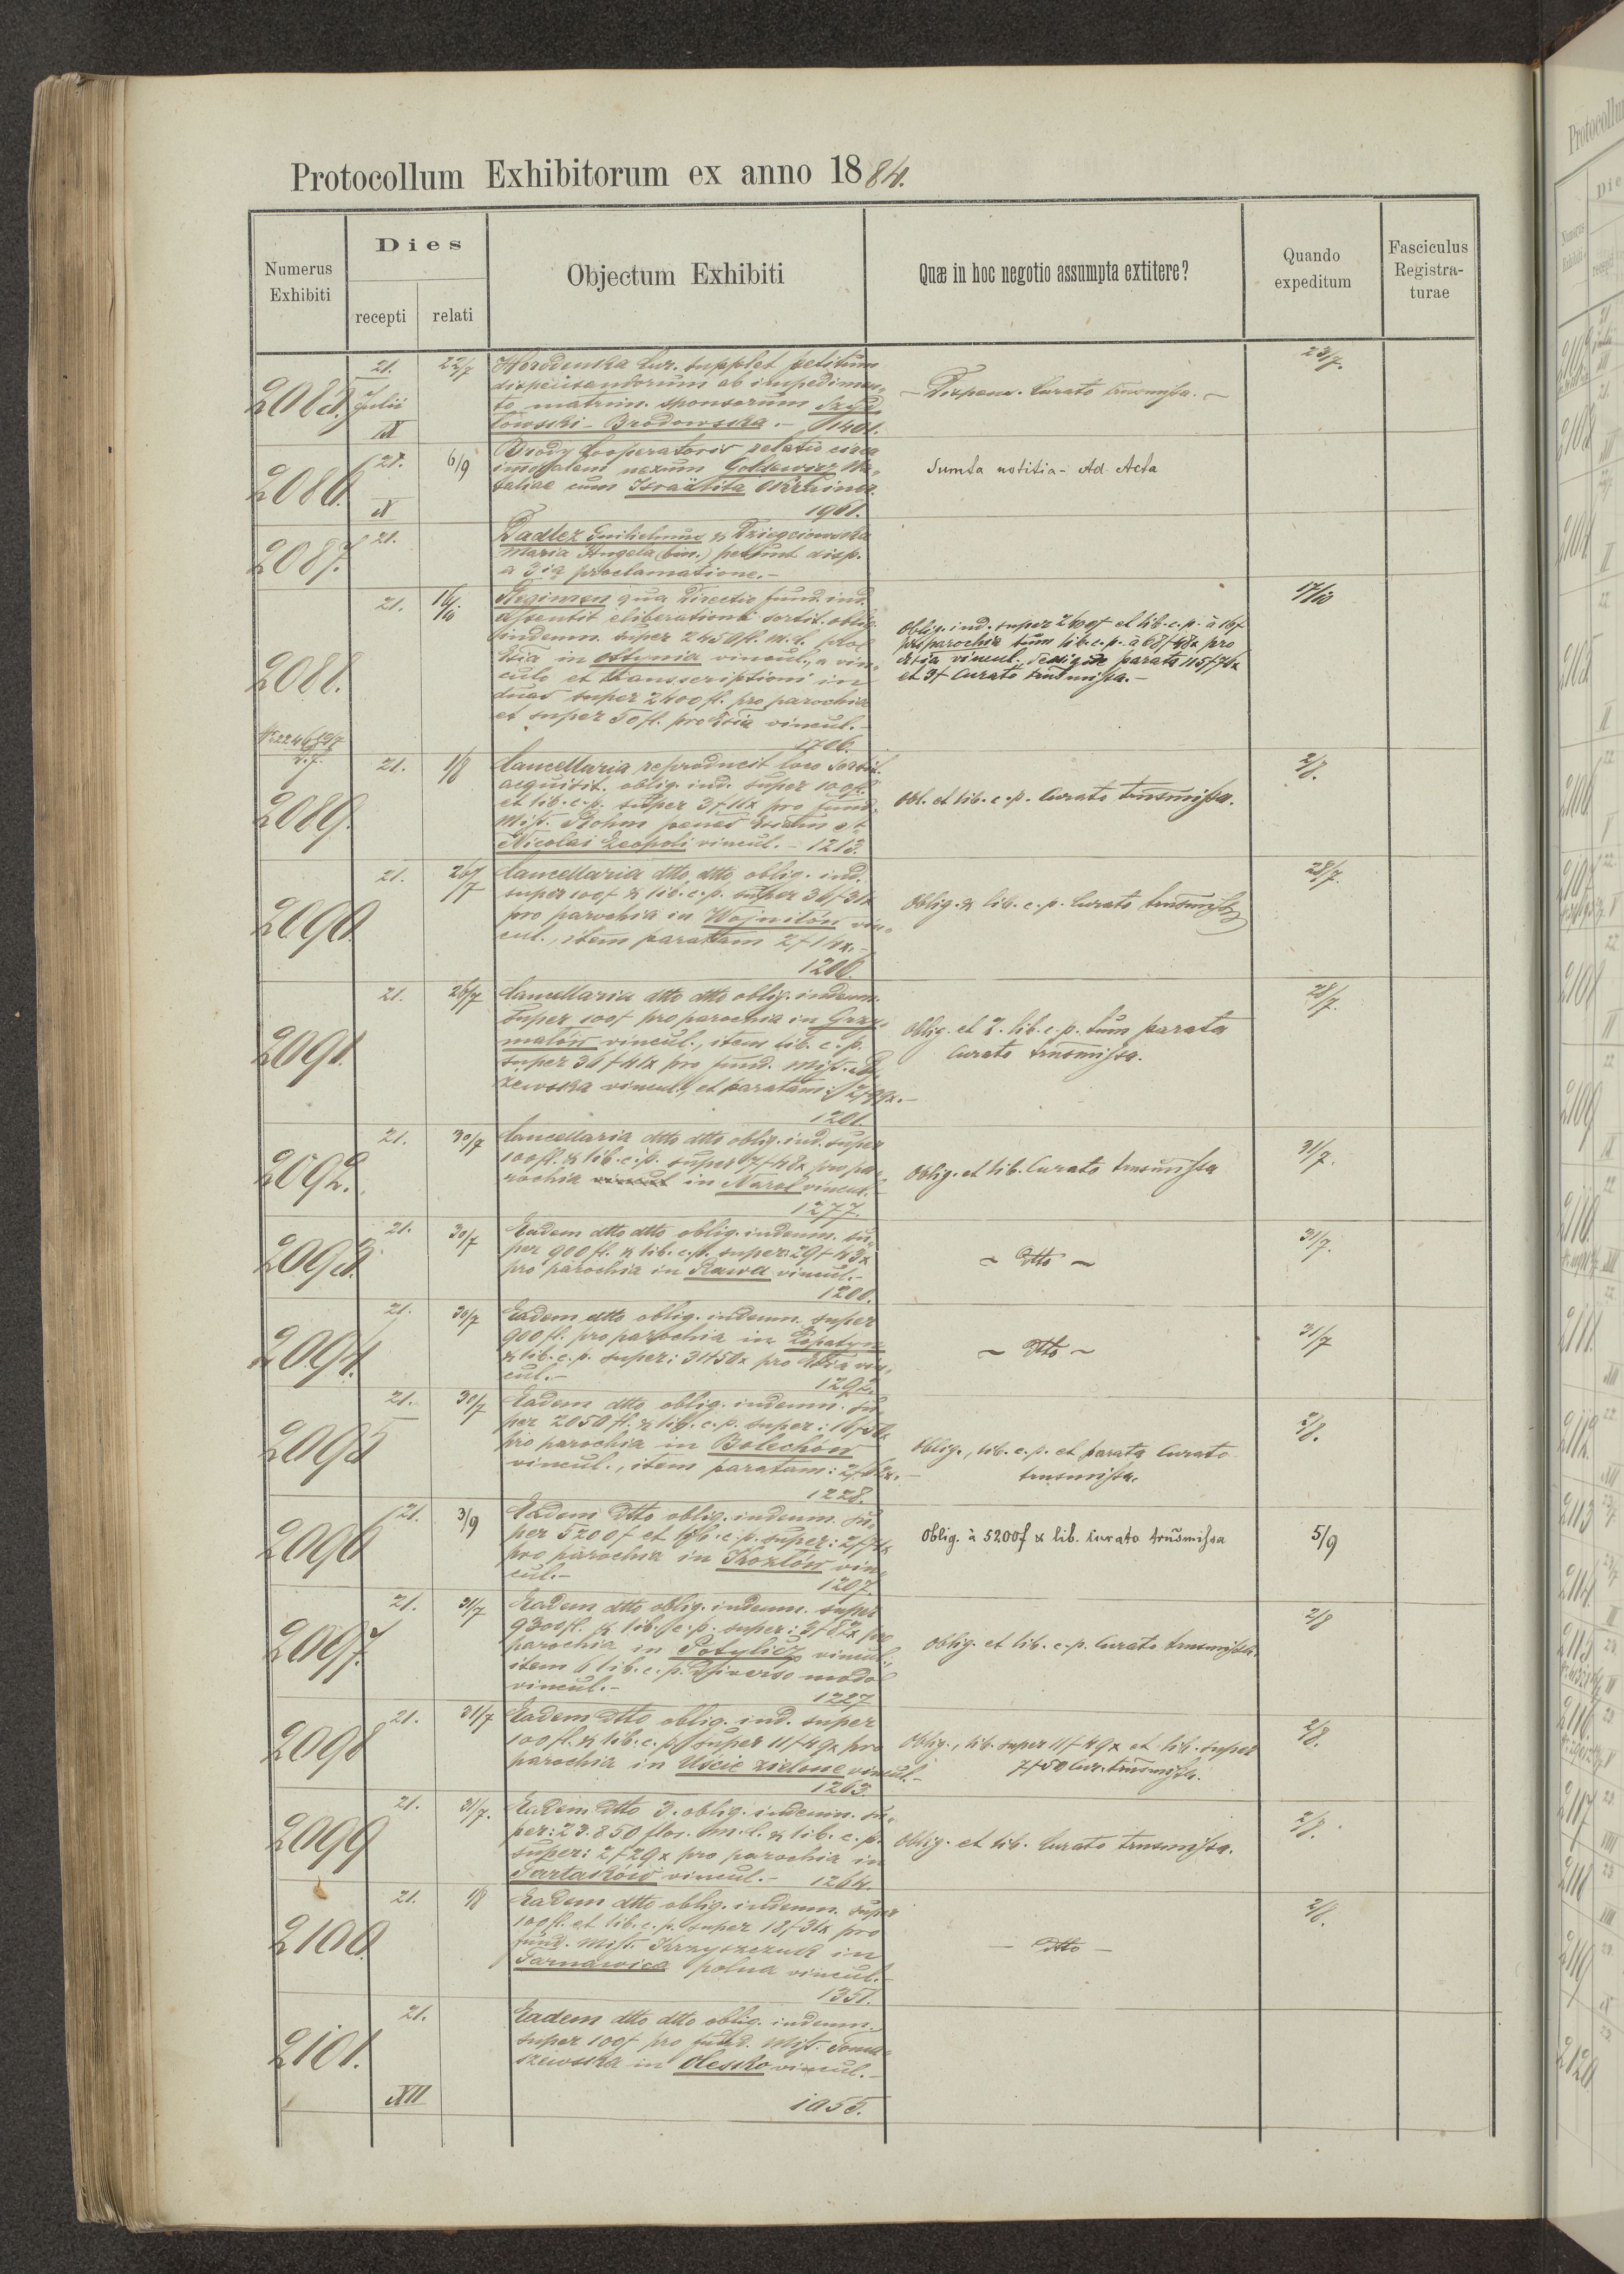 Protocollum Exhibitorum ex anno 1884.
Numerus Exhibiti
Dies
recepti
relati
Objectum Exhibiti
Quæ in hoc negotio assumpta extitere?
Quando expeditum
Fasciculus Registra-
turae
2085.
21.
Julii
IX
22/7
Horodenka Cur. supplet petitum
dispensandorum ab impedimen-
to matrim. sponsorum Szyd-
łowski - Brodowska. - 1401.
- Dispens. Curato trnsmissa. -
23/7.
2086.
21.
X
6/9
Brody Cooperatoris relatio circa
immoralem nexum Na-
taliae cum Israëlita
1961.
Sumta notitia - Ad Acta
2087.
21.
Guilielmus &
Maria Angela (bin.) petunt disp.
a 3ia proclamatione. -
2088.
21.
16/10
Regimen qua Directio fund. ind.
assentit eliberationi sortit. oblig.
indemn. super 2450 fl. m.c. pro
Ecsia in Ottynia vincul., a vin-
culo et transscriptioni in
duas super 2400 fl. pro parochia
et super 50 fl. pro Ecsia vincul. -
1706.
Oblig. ind. super 2400f et lib. c. p. à 16f
pro parochia tum lib. c. p. à 68f48x pro
Ecsia vincul., denique parata 115f74x
et 3f Curato trnsmissa. -
17/10
2089.
21.
1/8
Cancellaria reproducit loco sortit.
acquisit. oblig. ind. super 100 fl.
et lib. c. p. super 3f11x pro fund.
Miss. Böhm penes Ecsiam st.
Nicolai Leopoli vincul. - 1213.
Obl. et lib. c. p. Curato trnsmissa.
2/8.
2090.
21.
26/7
Cancellaria dtto dtto oblig. ind.
super 100f & lib. c. p. super 36f31x
pro parochia in Wojniłów vin-
cul., item paratam 2f14x. -
1206.
Oblig. & lib. c. p. Curato trnsmissa
28/7.
2091.
21.
26/7
Cancellaria dtto dtto oblig. indemn.
super 100f pro parochia in Grzy-
małów vincul., item lib. c. p.
super 36f41x pro fund. Miss.
vincul., et paratam:
1201.
Oblig. et 2. lib. c. p. tum parata
Curato trnsmissa.
28/7.
2092.
21.
30/7
Cancellaria dtto dtto oblig. ind. super
100 fl. & lib. c. p. super 7f48x pro pa-
rochia in Narol vincul.
1277.
Oblig. et lib. Curato trnsmissa
31/7.
2093.
21.
30/7
Eadem dtto dtto oblig. indemn. su-
per 900 fl. & lib. c. p. super: 29f43x
pro parochia in Rawa vincul. -
1200.
~ Dtto ~
31/7.
2094.
21.
30/7
Eadem dtto oblig. indemn. super
900 fl. pro parochia in Łopatyn
& lib. c. p. super: 31f50x pro Ecsia vin-
cul. -
1292.
~ Dtto ~
31/7
2095
21.
30/7
Eadem dtto oblig. indemn. su-
per 2050 fl. & lib. c. p. super:
pro parochia in Bolechów
vincul., item paratam:
1228.
Oblig., lib. c. p. et parata Curato
trnsmissa.
2/8.
2096
21.
3/9
Eadem Dtto oblig. indemn. su-
per 5200f et lib. c. p. super: 2f74x
pro parochia in Kozłów vin-
cul. -
1207.
Oblig. à 5200f & lib. Curato trnsmissa
5/9
2097.
21.
31/7
Eadem dtto oblig. indemn. super
9300 fl. & lib. c. p. super: 3f82x pro
parochia in Potylicz vincul.,
item 6 lib. c. p. diverso modo
vincul. -
1227
Oblig. et lib. c. p. Curato trnsmissa.
2/8
2098
21.
31/7
Eadem Dtto oblig. ind. super
100 fl. & lib. c. p. super 11f49x pro
parochia in Uście zielone vincul. -
1263.
Oblig., lib. super 11f49x et lib. super
7f50 Cur. trnsmissa.
2/8.
2099
21.
31/7.
Eadem Dtto 3. oblig. indemn. su-
per: 23.850 flor. m.c. & lib. c. p.
super: 2f29x pro parochia in
Tartaków vincul. - 1264.
Oblig. et lib. Curato trnsmissa.
2/8.
2100
21.
1/8
Eadem dtto oblig. indemn. super
100 fl. et lib. c. p. super 18f31x pro
fund. Miss. Krzyszczuk in
Tarnawica polna vincul. -
1351.
- Dtto -
2/8.
2101.
21.
XII
Eadem dtto dtto oblig. indemn.
super 100f pro fund. Miss. Toma-
szewska in Olesko vincul. -
1055.